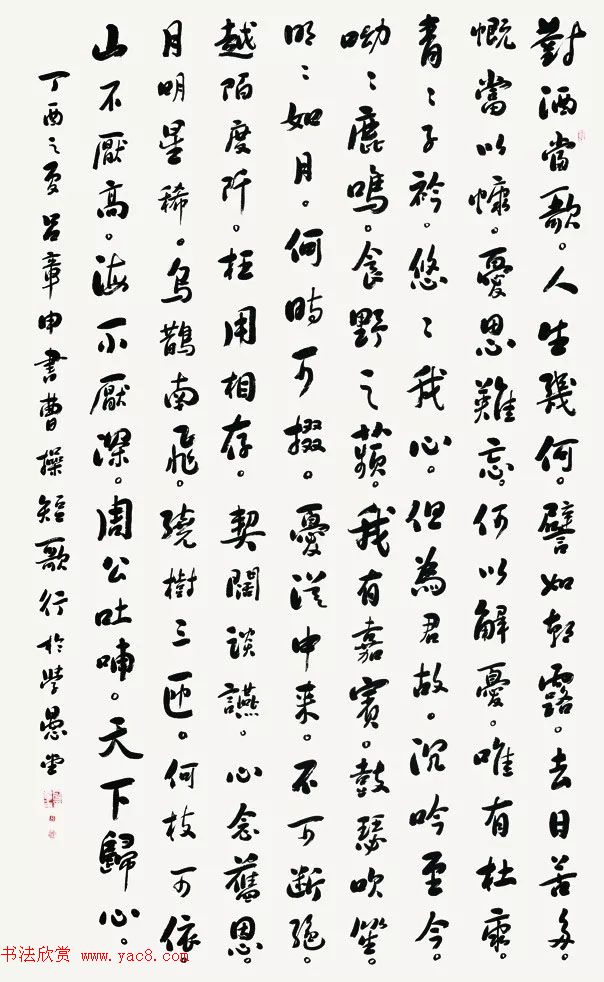 對酒當歌。人生幾何。譬如朝露。去日苦多。
慨當以慷。憂思難忘。何以解憂。唯有杜康。
青〻子衿。悠〻我心。但為君故。沉吟至今。
呦〻鹿鳴。食野之蘋。我有嘉賓。鼓瑟吹笙。
明〻如月。何時可掇。憂從中来。不可断絕。
越陌度阡。枉用相存。契闊談讌。心念舊恩。
月明星稀。烏鵲南飛。繞樹三匝。何枝可依。
山不厭高。海不厭深。周公吐哺。天下歸心。
丁酉之夏吕章申書曹操短歌行於愚堂
书法欣赏 www.yac8.com